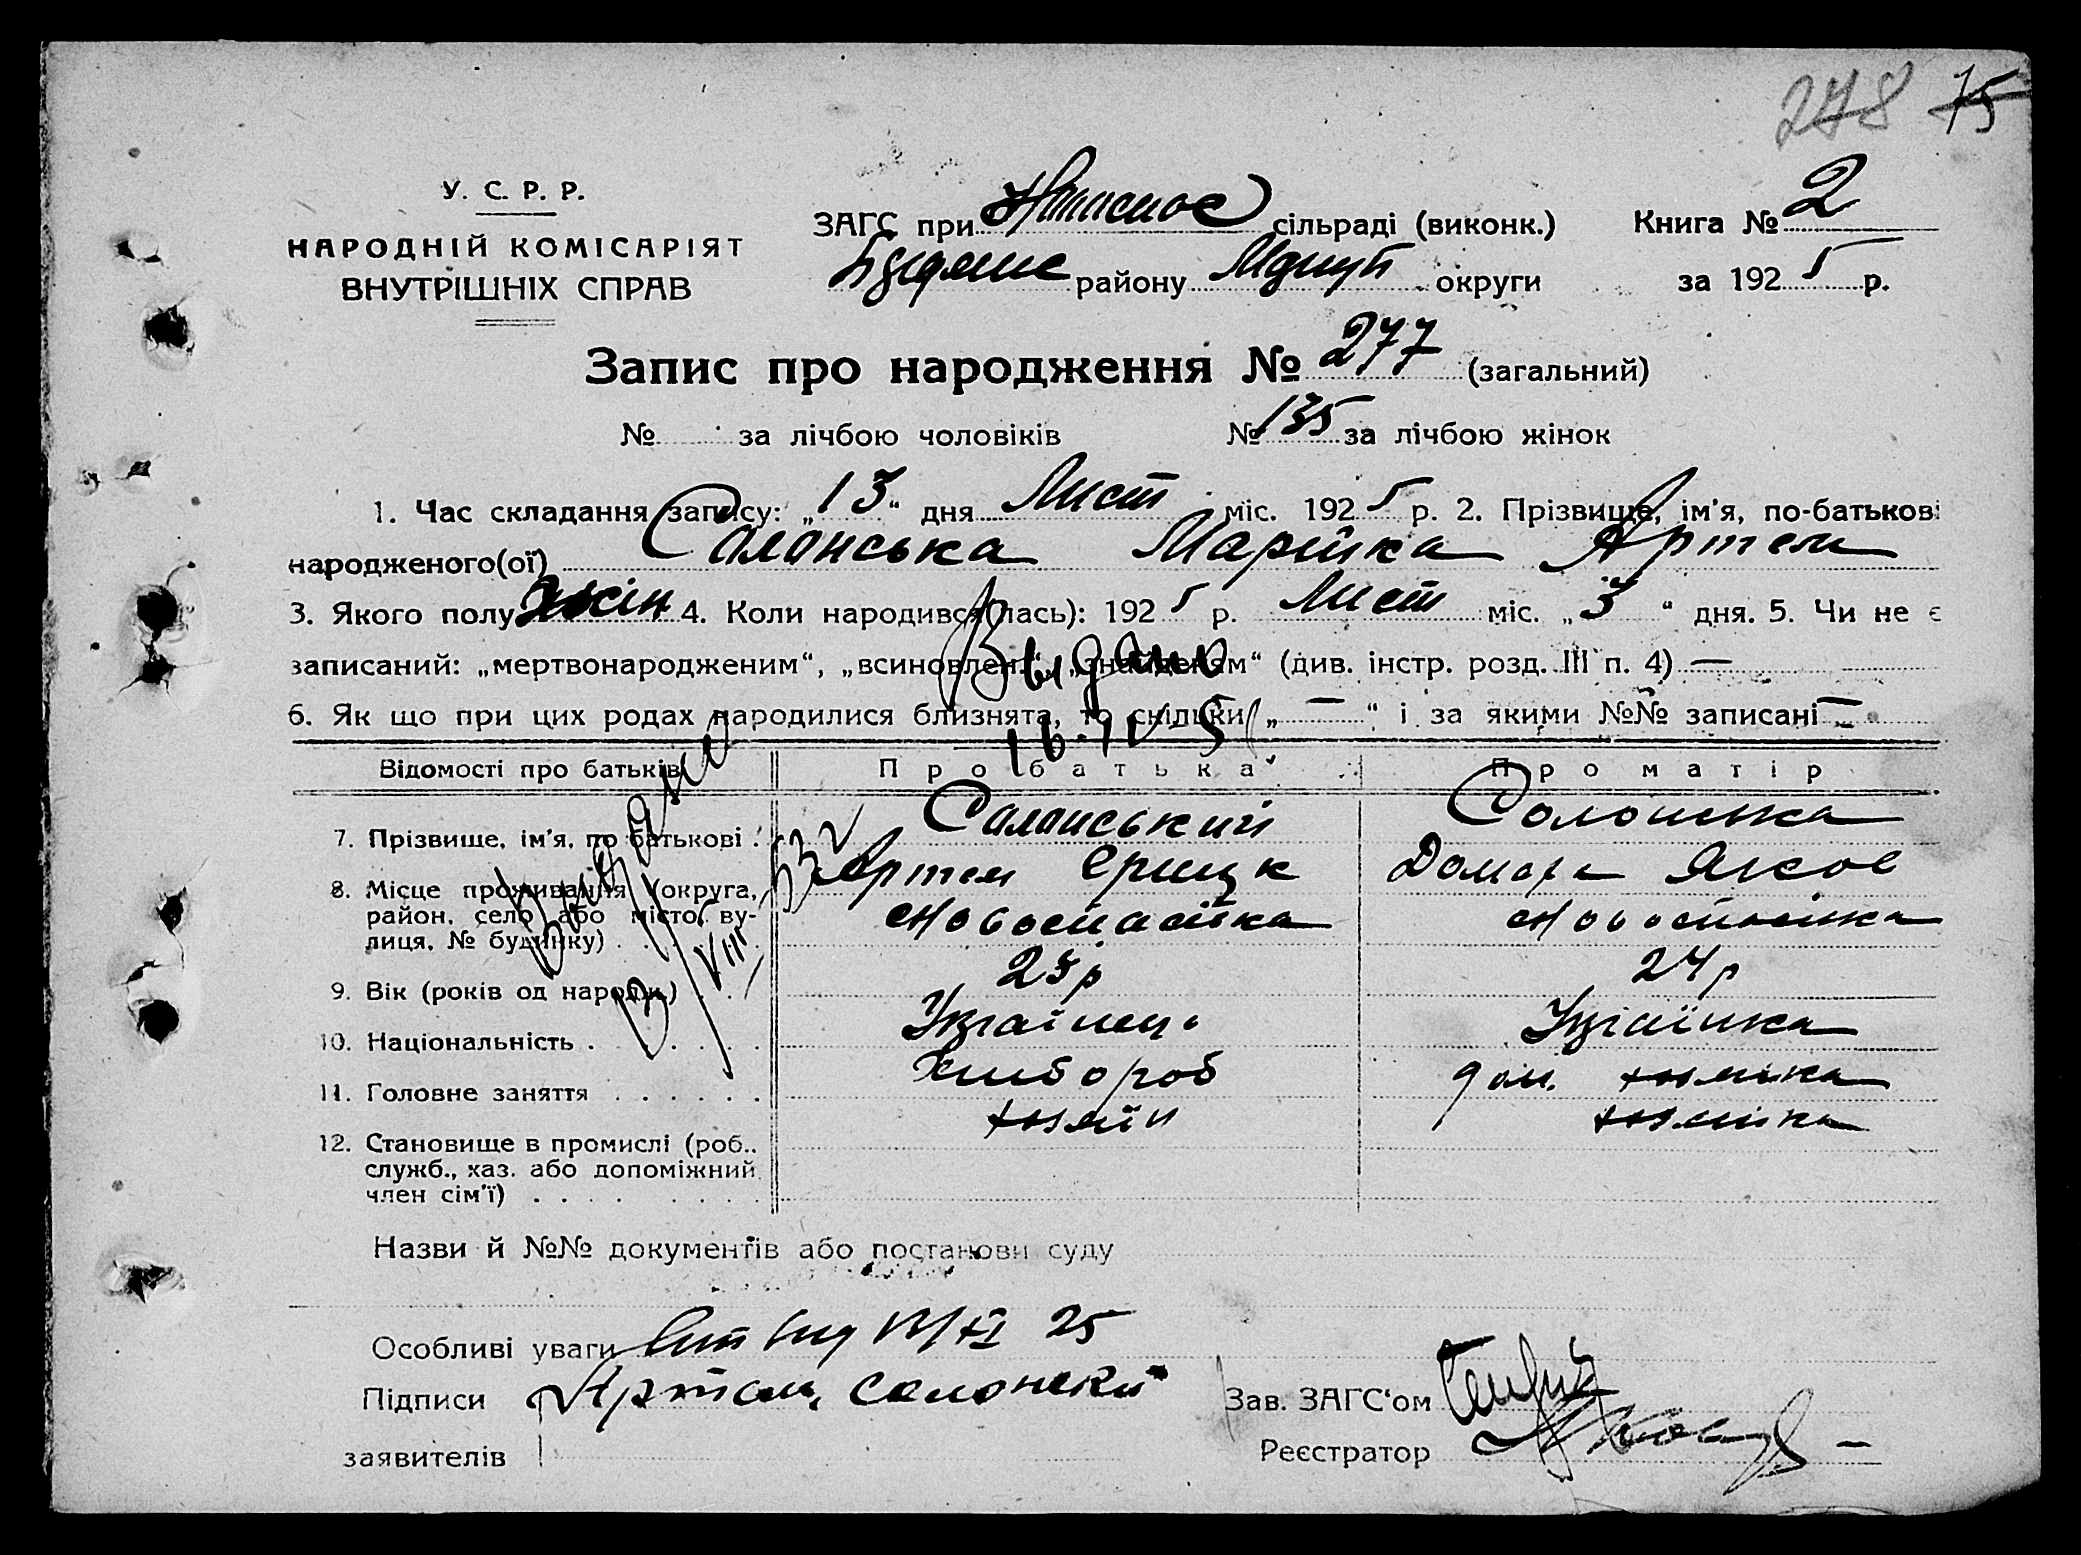 278 75
У. С. Р. Р.
НАРОДНІЙ КОМІСАРІЯТ
ВНУТРІШНІХ СПРАВ
ЗАГС при сільраді (виконк.) Книга № 2
району округи за 192 5 р.
Запис про народження № 277 (загальний)
№ за лічбою чоловіків № 135 за лічбою жінок
1. Час складання запису: „ 13 “ дня Лист міс. 192 5 р. 2. Прізвище, ім'я, по-батькові
народженого(ої) Солонська Марійка Артем
3. Якого полу жін 4. Коли народився(лась): 192 5 р. Лист міс. „ 3 “ дня. 5. Чи не є
записаний: „мертвонародженим“, „всиновлен.“, „знайденям“ (див. інстр. розд. III п. 4) —
Выдано
6. Як що при цих родах народилися близнята, то скільки „ — “ і за якими №№ записані —
Відомості про батьків Про батька Про матір
7. Прізвище, ім'я, по батькові . Солонський Солонська
Артем Домаха Яков
8. Місце проживання (округа, район, село або місто, вулиця, № будинку) . Новоспасівка Новоспасівка
9. Вік (років од народж.) . . 23 р 24 р
10. Національність . Українець Українка
11. Головне заняття . . . . . . Хлібороб дом. хозяйка
12. Становище в промислі (роб., служб., хаз. або допоміжний член сім'ї) . . . . хозяїн хозяйка
Видано
Назви й №№ документів або постанови суду
Особливі уваги 25
Підписи Артем Солонский Зав. ЗАГС'ом
заявителів Реєстратор